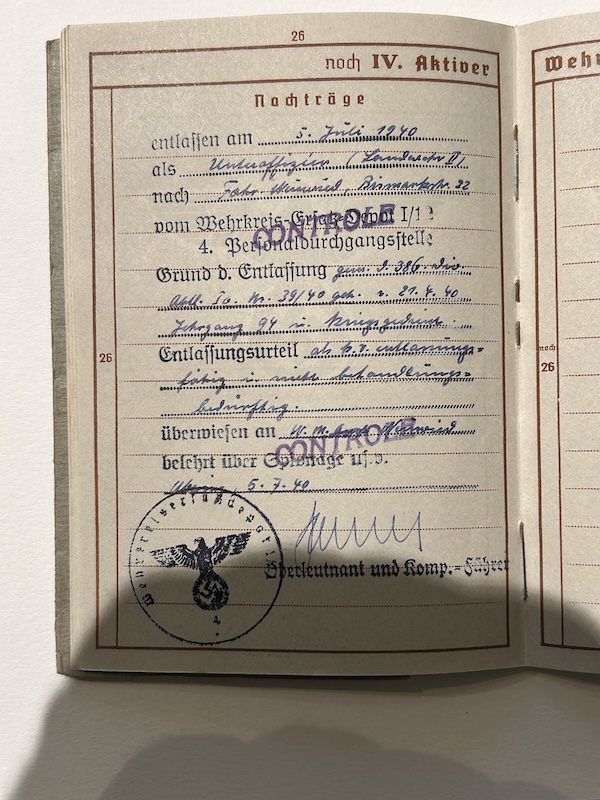 26
noch IV. Aktiver
Wehr
Nachträge
entlassen am 5. Juli 1940
als Unteroffizier (Landwehr II)
nach Fahr-Neuwied, Bismarckstr. 22
vom Wehrkreis-Ersatz-Depot I/12
CONTROLE
4. Personaldurchgangsstelle
Grund d. Entlassung gem. d. 386. Div.
Abtl. Ia. Nr. 39/40 geh. v. 21.4.40
Jahrgang 94 u. Kriegsgedient.
Entlassungsurteil als k.v. entlassungs=
26
noch
26
fähig u. nicht behandlungs=
bedürftig.
überwiesen an W. M. Neuwied
CONTROLE
belehrt über Spionage usw.
5.7.40
Oberleutnant und Komp.-Führer
Wehrkreisersatzdepot
4